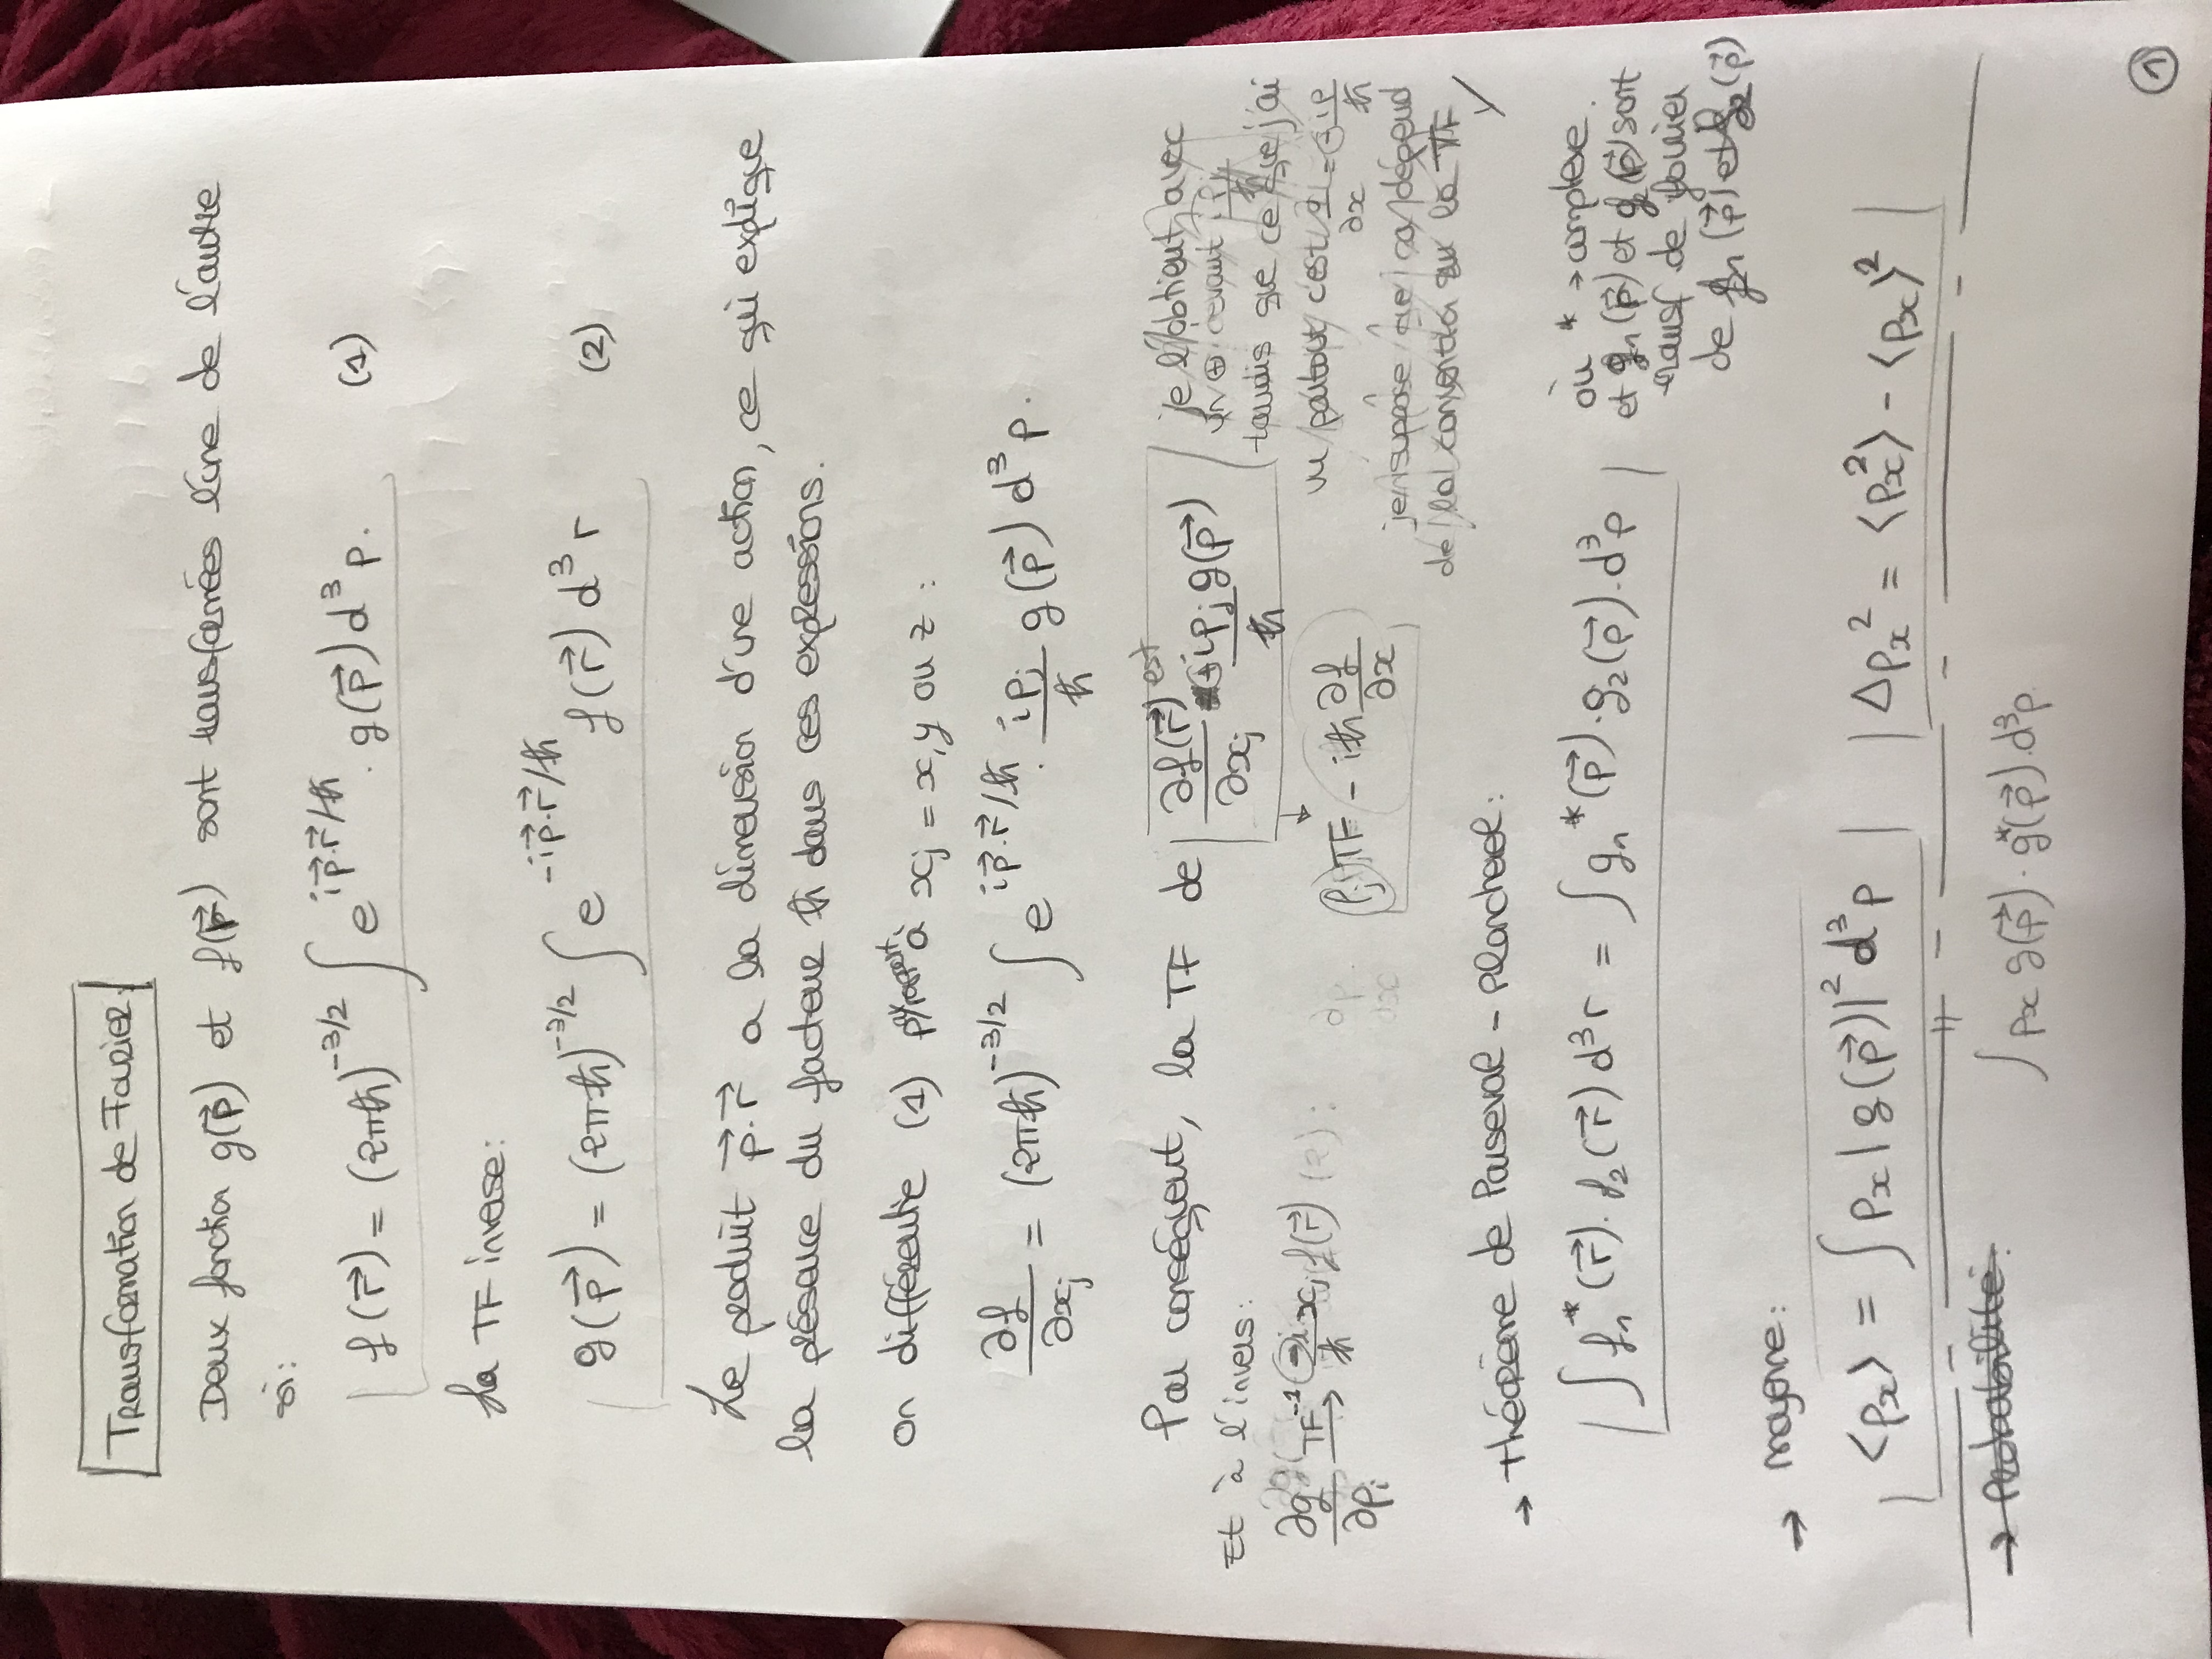 Transformation de Fourier.
Deux fonction g(p⃗) et f(r⃗) sont transformées l'une de l'autre
si:
f(r⃗) = (2πℏ)^{-3/2} ∫ e^{ip⃗.r⃗/ℏ} . g(p⃗) d³p. (1)
La TF inverse:
g(p⃗) = (2πℏ)^{-3/2} ∫ e^{-ip⃗.r⃗/ℏ} f(r⃗) d³r (2)
Le produit p⃗.r⃗ a la dimension d'une action, ce qui explique
la présence du facteur ℏ dans ces expressions.
on différentie (1) par rapport à xj = x, y ou z :
∂f/∂xj = (2πℏ)^{-3/2} ∫ e^{ip⃗.r⃗/ℏ} . ipj/ℏ g(p⃗) d³p.
Par conséquent, la TF de ∂f(r⃗)/∂xj est + ipj/ℏ g(p⃗)
je l'obtient avec
un ⊕ devant ipj/ℏ
tandis que ce que j'ai
vu partout c'est ∂/∂x = -ip/ℏ
je suppose que ça dépend
de la convention sur la TF
Et à l'invers:
∂g/∂pi TF⁻¹→ -i/ℏ xj f(r⃗)
pj TF - iℏ ∂f/∂x
→ théorème de Parseval - Plancherel:
∫ f₁*(r⃗). f₂(r⃗) d³r = ∫ g₁*(p⃗). g₂(p⃗). d³p
où * → complexe.
et g₁(p⃗) et g₂(p⃗) sont
transf de fourier
de f₁(p⃗) et f₂(p⃗)
→ moyenne:
<px> = ∫ px |g(p⃗)|² d³p
Δpx² = <px²> - <px>²
→ Probabilité:
∫ px g(p⃗). g*(p⃗). d³p
1